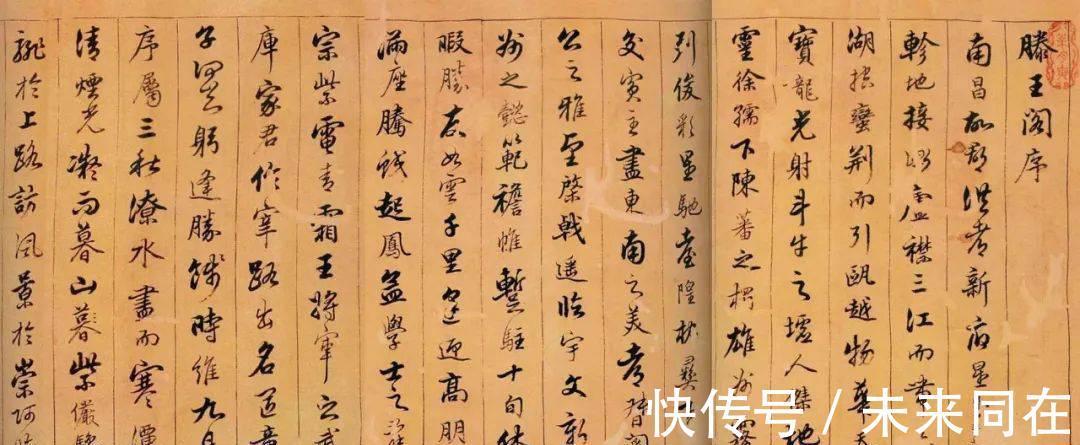 滕王阁序
南昌故郡洪都新府星
軫地接衡廬襟三江而帶
湖控蠻荊而引甌越物華天
寶龍光射斗牛之墟人傑地
靈徐孺下陳蕃之榻雄州霧
列俊彩星馳臺隍枕夷
交賓主盡東南之美都督閻
公之雅望棨戟遙臨宇文新
州之懿範襜帷暫駐十旬休
暇勝友如雲千里逢迎高朋
滿座騰蛟起鳳孟學士之詞
宗紫電青霜王將軍之武
庫家君作宰路出名區童
子何知躬逢勝餞時維九月
序屬三秋潦水盡而寒潭
清煙光凝而暮山暮紫儼驂
騑於上路訪風景於崇阿
快传号 / 未来同在